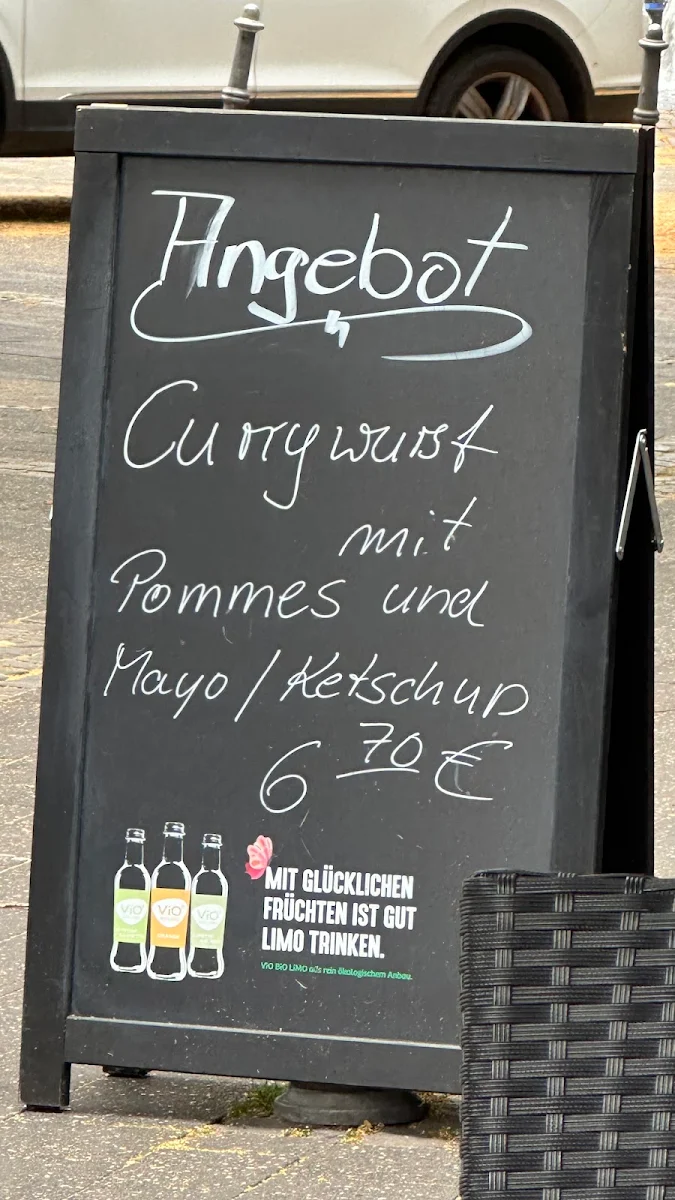 Angebot
Currywurst
mit
Pommes und
Mayo / Ketschup
6 70 €
ViO ViO ViO
MIT GLÜCKLICHEN
FRÜCHTEN IST GUT
LIMO TRINKEN.
ViO BiO LiMO aus rein ökologischem Anbau.